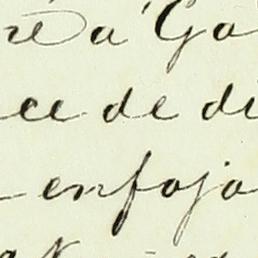 ré a Ga
ce de di
enfoja